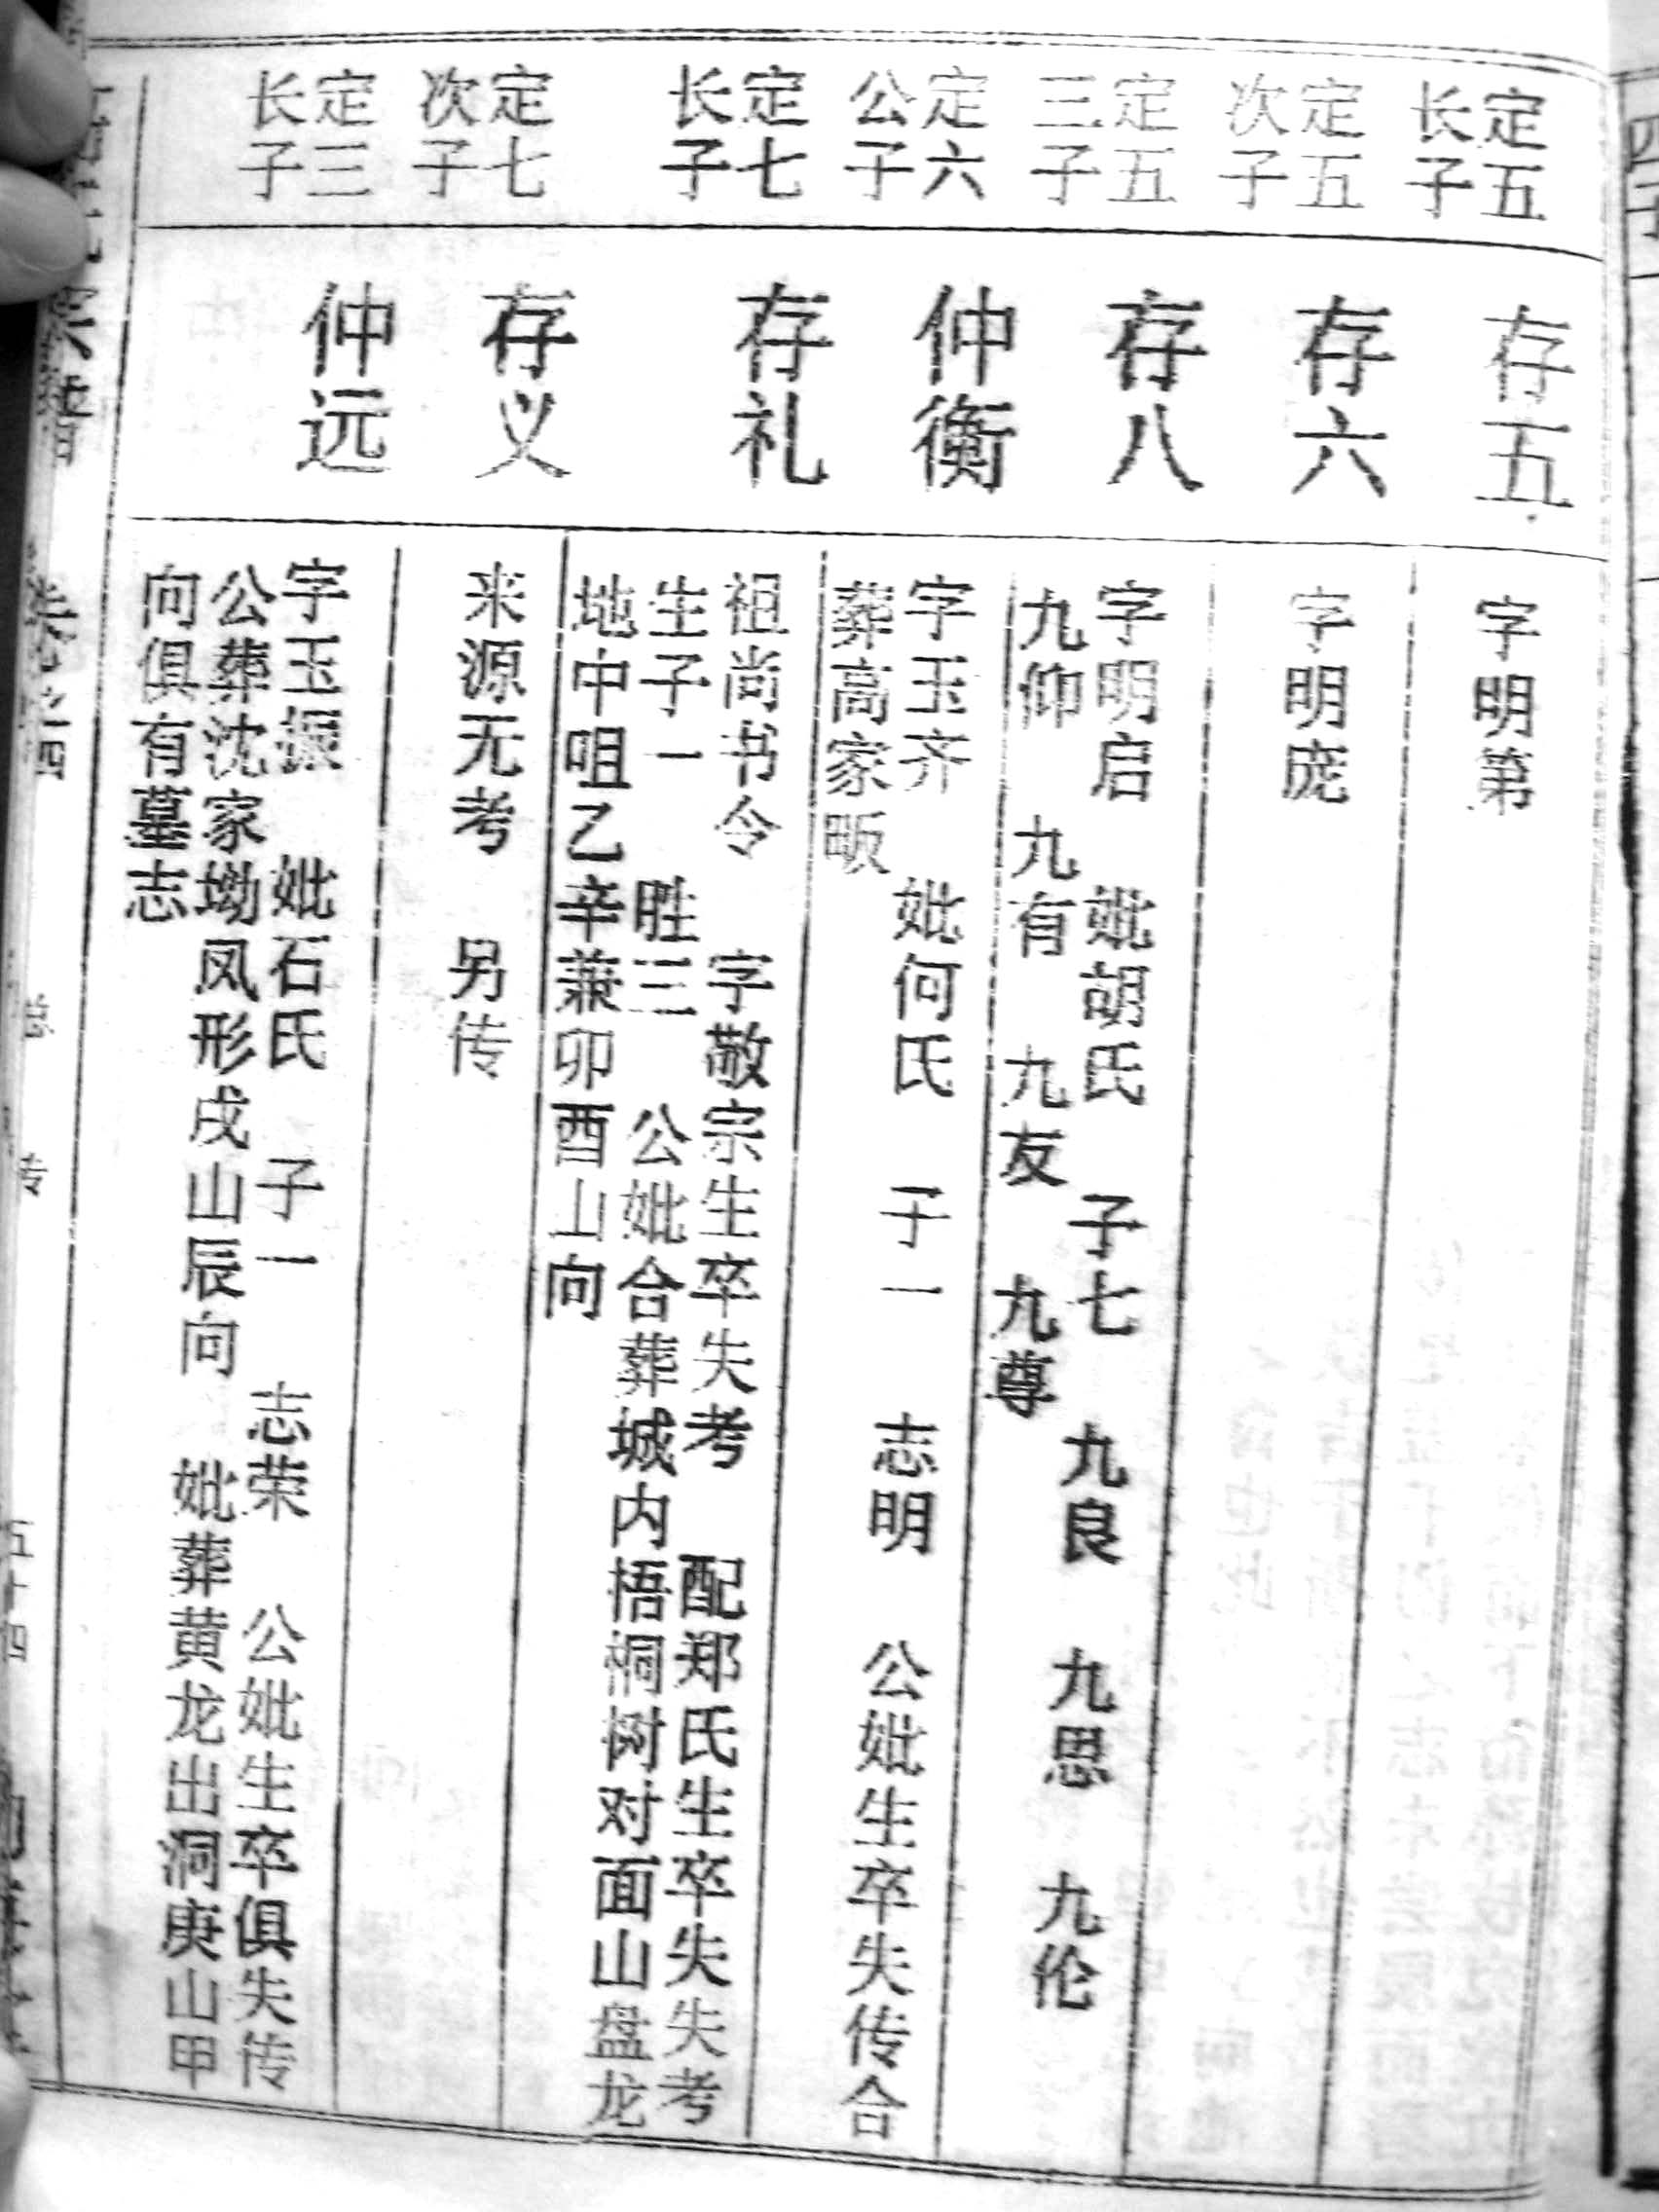 定五
长子
存五
字明第
定五
次子
存六
字明庞
定五
三子
存八
字明启 妣胡氏 子七 九良 九思 九伦
九仰 九有 九友 九尊
定六
公子
仲衡
字玉齐 妣何氏 子一 志明 公妣生卒失传合
葬高家畈
定七
长子
存礼
祖尚书令 字敬宗生卒失考 配郑氏生卒失失考
生子一 胜三 公妣合葬城内梧桐树对面山盘龙
地中咀乙辛兼卯酉山向
定七
次子
存义
来源无考 另传
定三
长子
仲远
字玉振 妣石氏 子一 志荣 公妣生卒俱失传
公葬沈家坳凤形戌山辰向 妣葬黄龙出洞庚山甲
向俱有墓志
宗谱 卷之四 总传 五十四